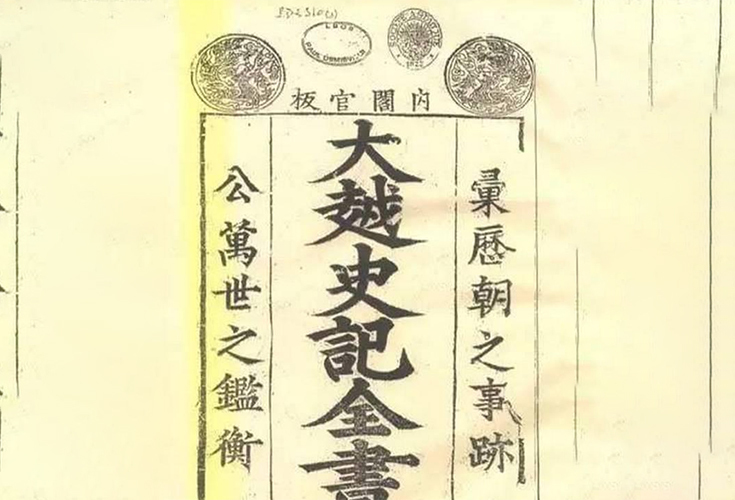 PD2310(1)
內閣官板
彙歷朝之事跡
大越史記全書
公萬世之鑑衡